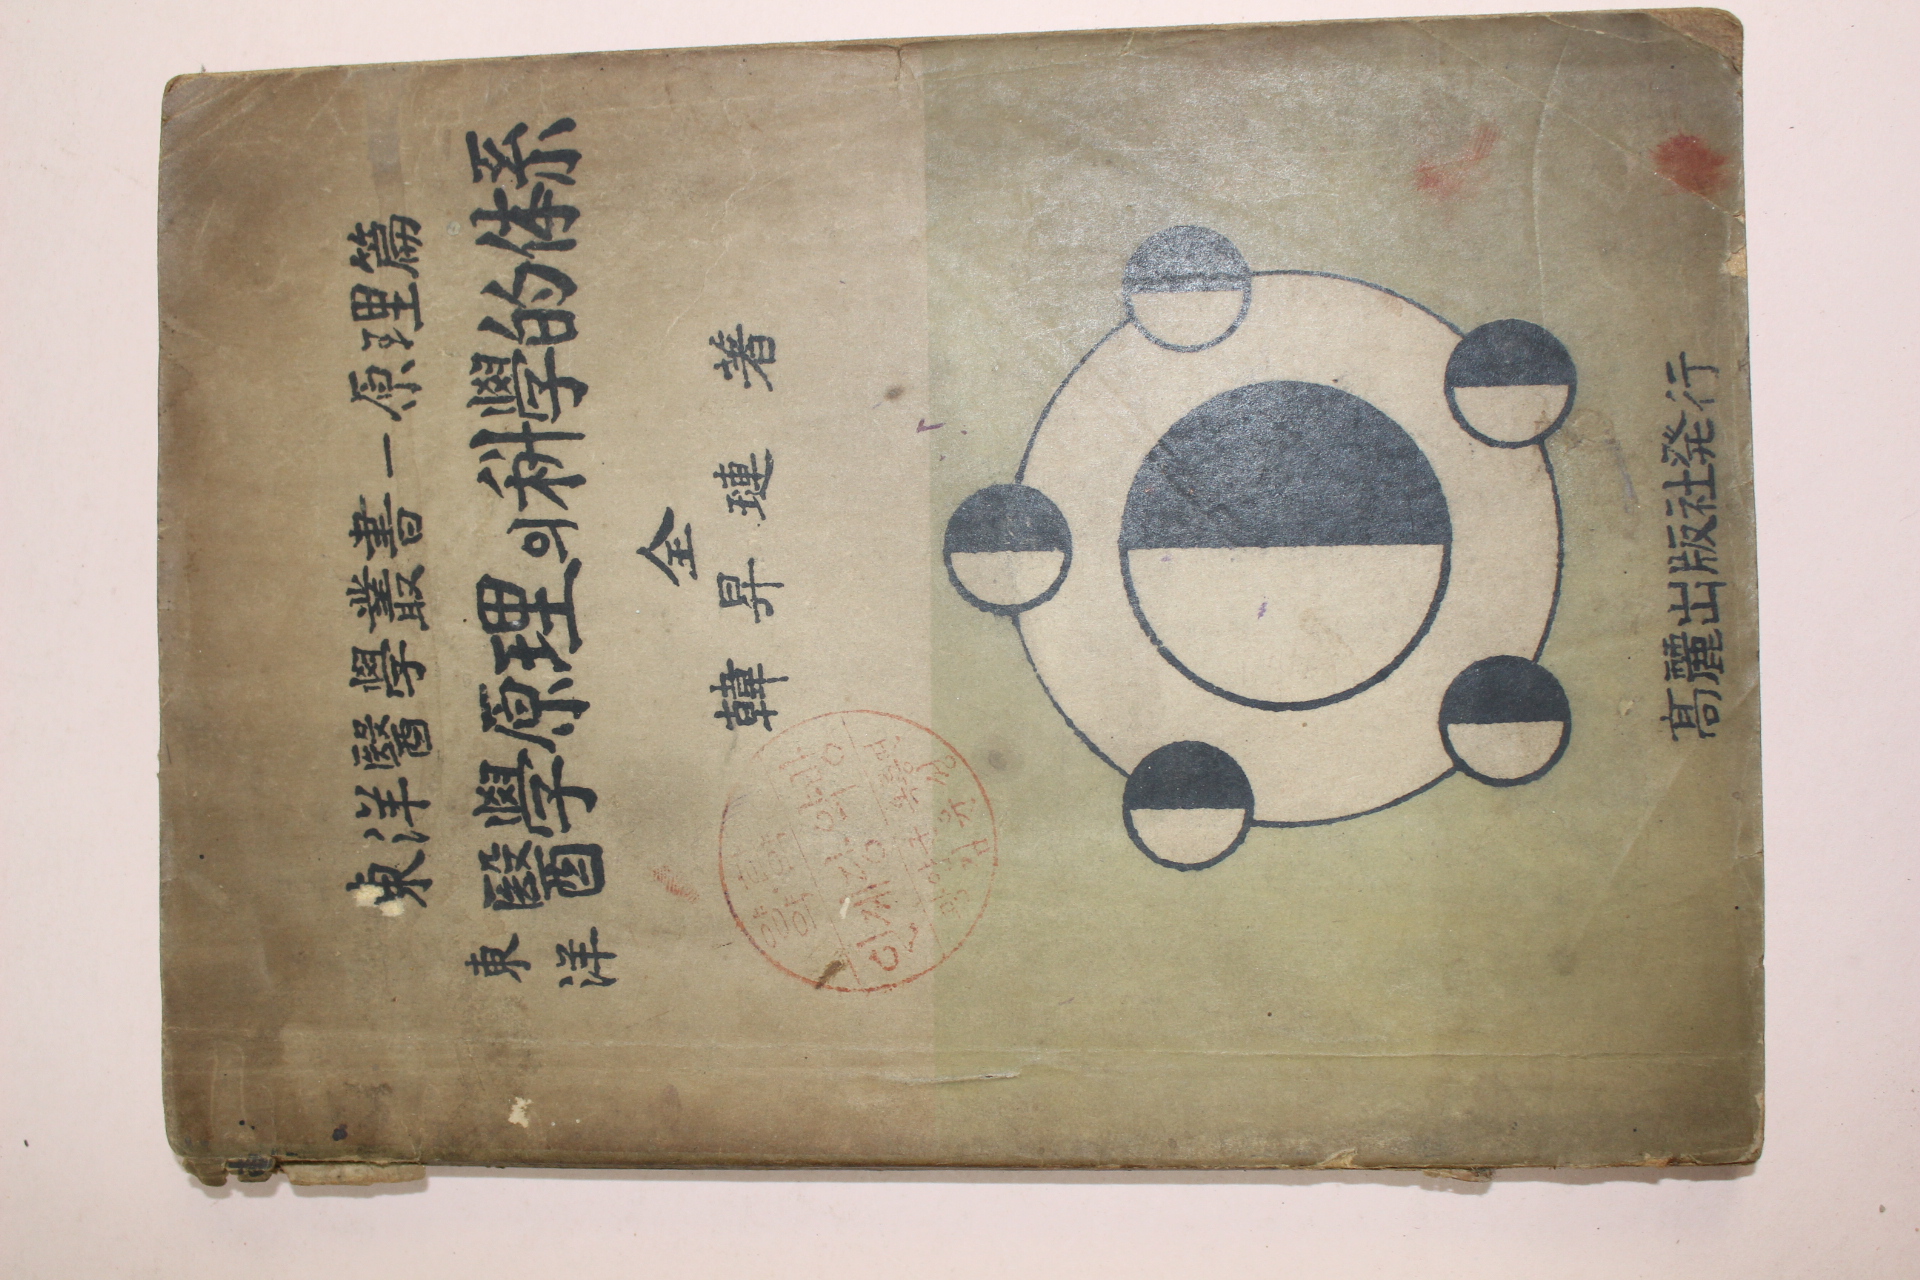 東洋醫學叢書一原理篇
東洋
醫學原理의科學的体系
金
韓昇璉 著
高麗出版社発行